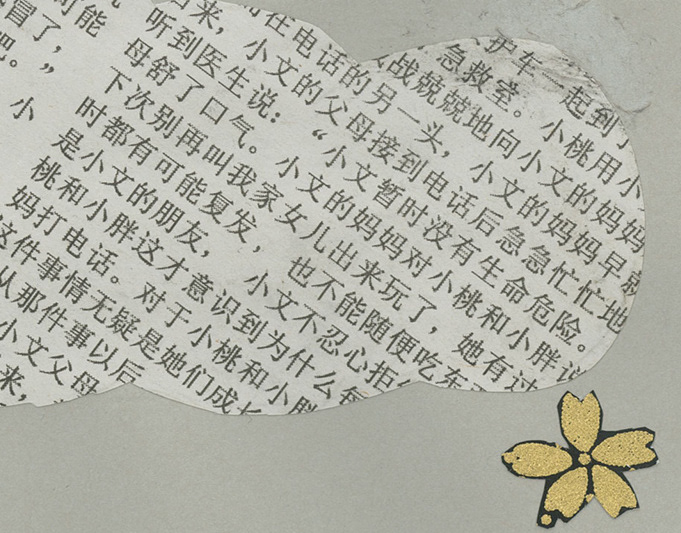 护车一起到
急救室。小桃用小
战兢兢地向小文的妈妈
在电话的另一头，小文的妈妈早就
来，小文的父母接到电话后急急忙忙地
听到医生说：“小文暂时没有生命危险。
母舒了口气。小文的妈妈对小桃和小胖
下次别再叫我家女儿出来玩了，她有过
可能时都有可能复发，也不能随便吃东
冒了，”是小文的朋友，小文不忍心拒
吧。小桃和小胖这才意识到为什么
妈打电话。对于小桃和小胖
这件事情无疑是她们成长
从那件事以后
小文父母
来，